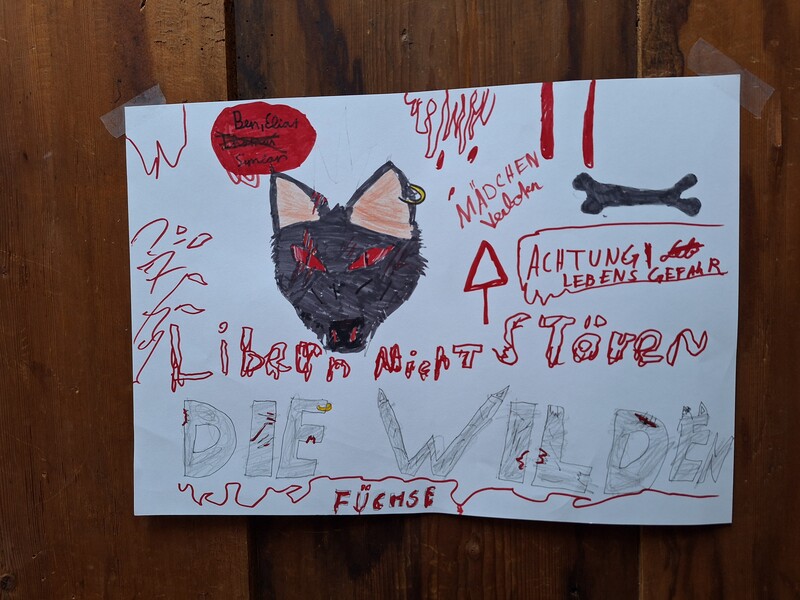 Ben, Elias
Simeon
MÄDCHEN
Verboten
ACHTUNG!
LEBENSGEFAHR
Libern Nicht STören
DIE WILDEN
FÜCHSE